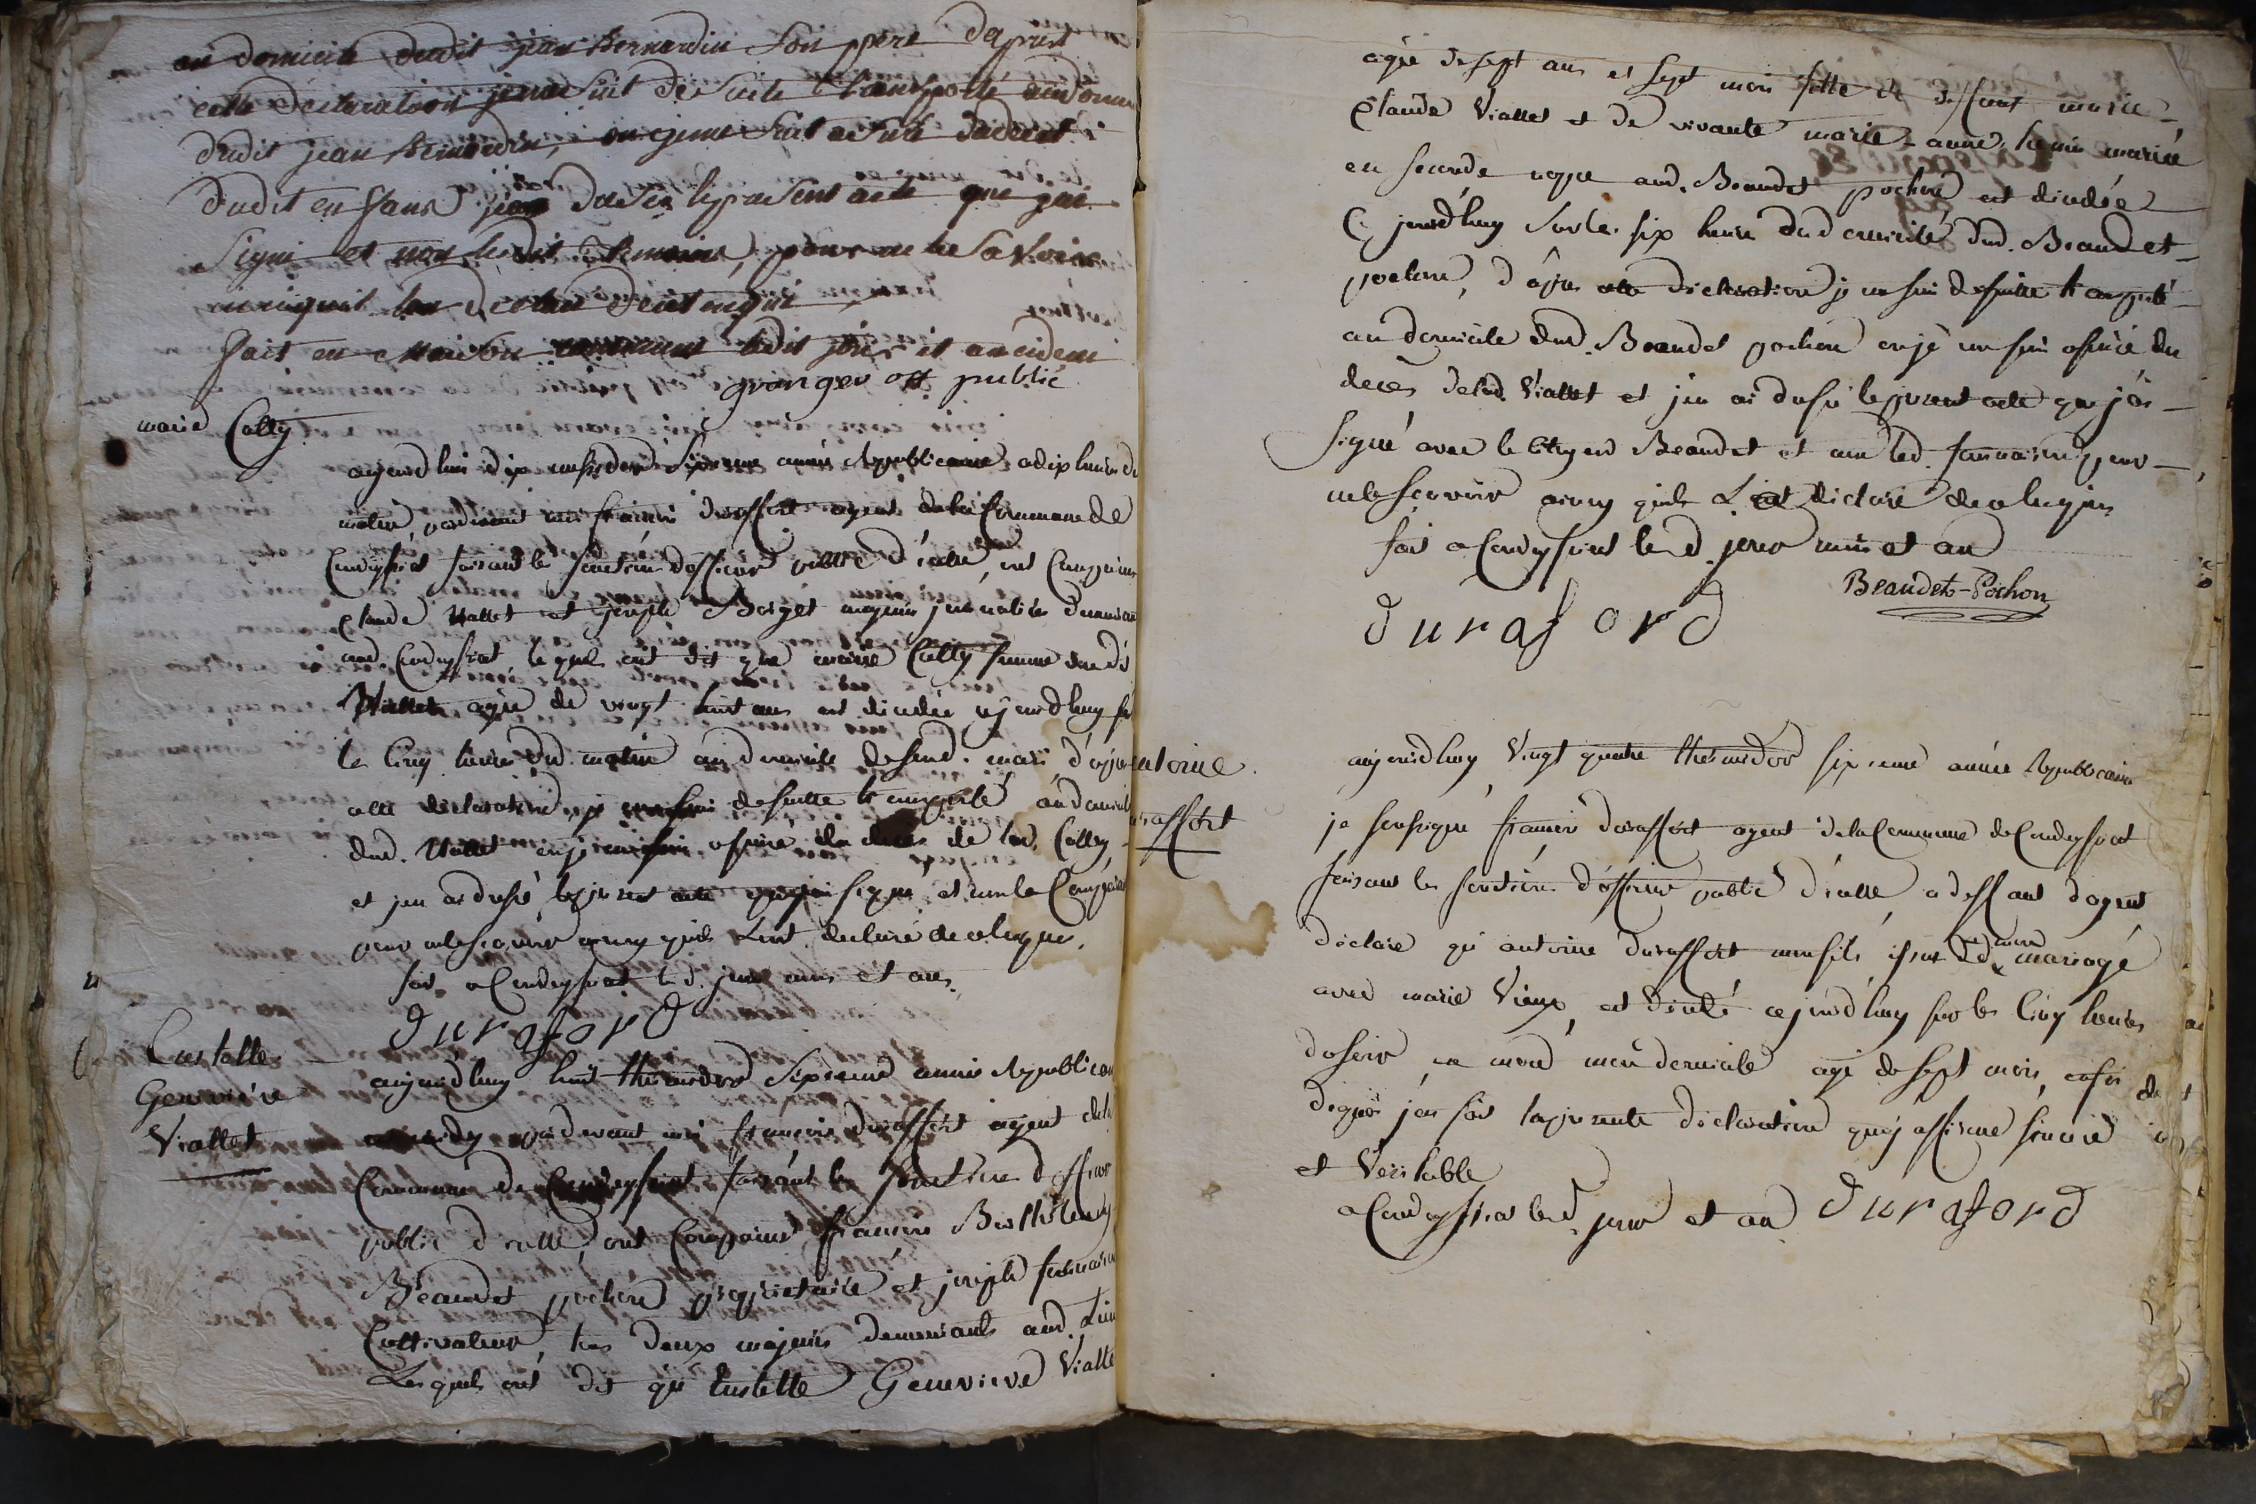 au domicile dudit jean Bernardin son ppere daprest
cette declaration jeme suit de suite transporté audomi
dudit jean Bernardin, ou jeme suit asuré dudecet
dudit enfans jean daésé lepraesent acte que jai
signé et non lesdit temoins, pour ne le savoire
fait en maison commune ledit jour et an cidesu
granger off public
marie Colly
aujourdhui dix messidor sixieme année Republicaine adix heures de
matin pardevant moi francois duraffort agent delaCommune de
Condeyssiat faisant les fonctions dofficier public d'icelle, ont Comparus
Claude Viallet et joseph Borget majeurs journaliers demeurant
aud. Condeyssiat, lesquels ont dit que marie Colly femme dudi
Viallet agée de vingt huit ans est décédée cejourdhuy sur
les Cinq heures du matin au domicile desond. mari, d'après
cette declaration je me suis desuitte transporté audomicile
dud. Viallet oujeme suis assuré du decés de lad. Colly,
et jen ai dressé leprésent acte quejai signé et non les Comparus
pour nele scavoir ainsy quils L'ont declaré decelenquis.
fait a Condeyssiat led. jour mois et an.
duraford
Custelle
Genevieve
Viallet
aujourdhuy huit thermidor sixieme année Republicaine
pardevant moi francois duraffort agent dela
Commune de Condeyssiat faisant les fonctions d'officier
public d'icelle, ont Comparus francois Barthelemy
Beaudet pochon proprietaire et joseph
Cultivateur, tous deux majeurs demeurants aud. Lieu
Lesquels ont dit que Custelle Genevieve Vialle
agée desept ans et sept mois fille de deffunt marie-
Claude Viallet et de vivante marie-anne mariée
en seconde noppe aud. Beaudet pochon est décédée
Cejourdhuy sur les six heures du domicile dud. Beaudet
pochon, d'après cette declaration je me suis desuitte transporté
au domicile dud. Beaudet pochon oujé me suis assuré du
decès delad. Viallet et j'en ai dressé leprésent acte que j'ai
signé avec le Citoyen Beaudet et non led. pour
nele scavoir ainsy quils L'ont declaré decelenquis
fait a Condeyssiat led. jour mois et an
Beaudet-Pochon
duraford
antoine
duraffort
aujourdhuy vingt quatre thermidor sixieme année Republicaine
je soussigné francois duraffort agent delaCommune deCondeyssiat
faisant les fonctions d'officier public d'icelle, adeffaut dagent
déclare qu'antoine duraffort monfils issus de mon mariage
avec marie Vieux, est décédé cejourd'huy sur les Cinq heures
dusoir, en mond. domicile agé de sept mois, enfoi
dequoi j'en fais laprésente déclaration quej'affirme sincere
et Veritable
a Condeyssiat led. jour et an duraford